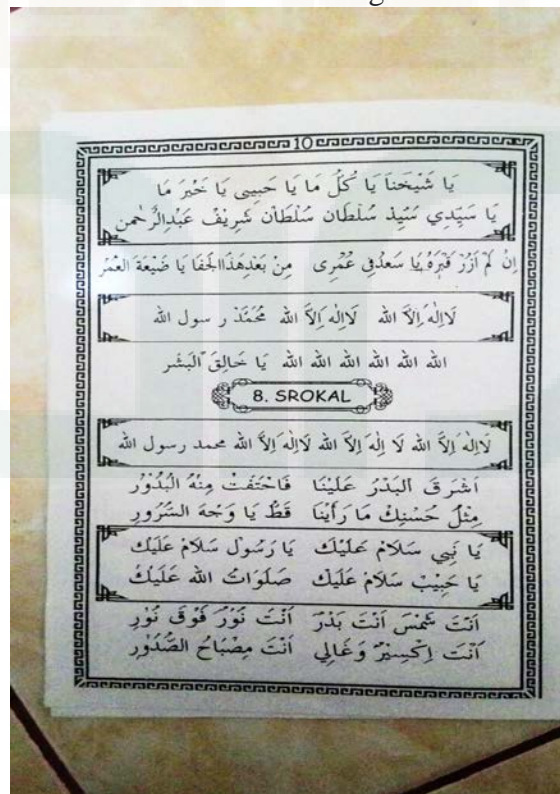 10
يَا شَيْخَنَا يَا كُلُّ مَا يَا حَبِيبِى يَا خَيْرَ مَا
يَا سَيِّدِي سُيِّدْ سُلْطَان سُلْطَان شَرِيْفْ عَبْدِالرَّحْمن
اِنْ لَمْ اَزُرْ قَبْرَهُ يَا سَعْدُفِى عُمْرِى مِنْ بَعْدِهَذَاالْجَفَا يَا ضَيْعَةَ العُمْرِ
لَااِلٰهَ اِلاَّ الله لَااِلٰه اِلاَّ الله مُحَمَّدْ ر سول الله
الله الله الله الله الله الله يَا خَالِقَ الْبَشَر
8. SROKAL
لَااِلٰهَ اِلاَّ الله لَا اِلٰهَ اِلاَّ الله لَااِلٰه اِلاَّ الله محمد رسول الله
اَشْرَقَ الْبَدْرُ عَلَيْنَا فَاخْتَفَتْ مِنْهُ الْبُدُوْرُ
مِثْلَ حُسْنِكْ مَا رَأَيْنَا قَطُّ يَا وَجْهَ السُّرُورِ
يَا نَبِي سَلَامْ عَلَيْكَ يَا رَسُوْل سَلَامْ عَلَيْك
يَا حَبِيْبْ سَلَامْ عَلَيْكَ صَلَوَاتُ الله عَلَيْكْ
اَنْتَ شَمْسٌ اَنْتَ بَدْرٌ اَنْتَ نُوْرٌ فَوْقَ نُوْرِ
اَنْتَ اِكْسِيْرٌ وَغَالِي اَنْتَ مِصْبَاحُ الصُّدُوْرِ